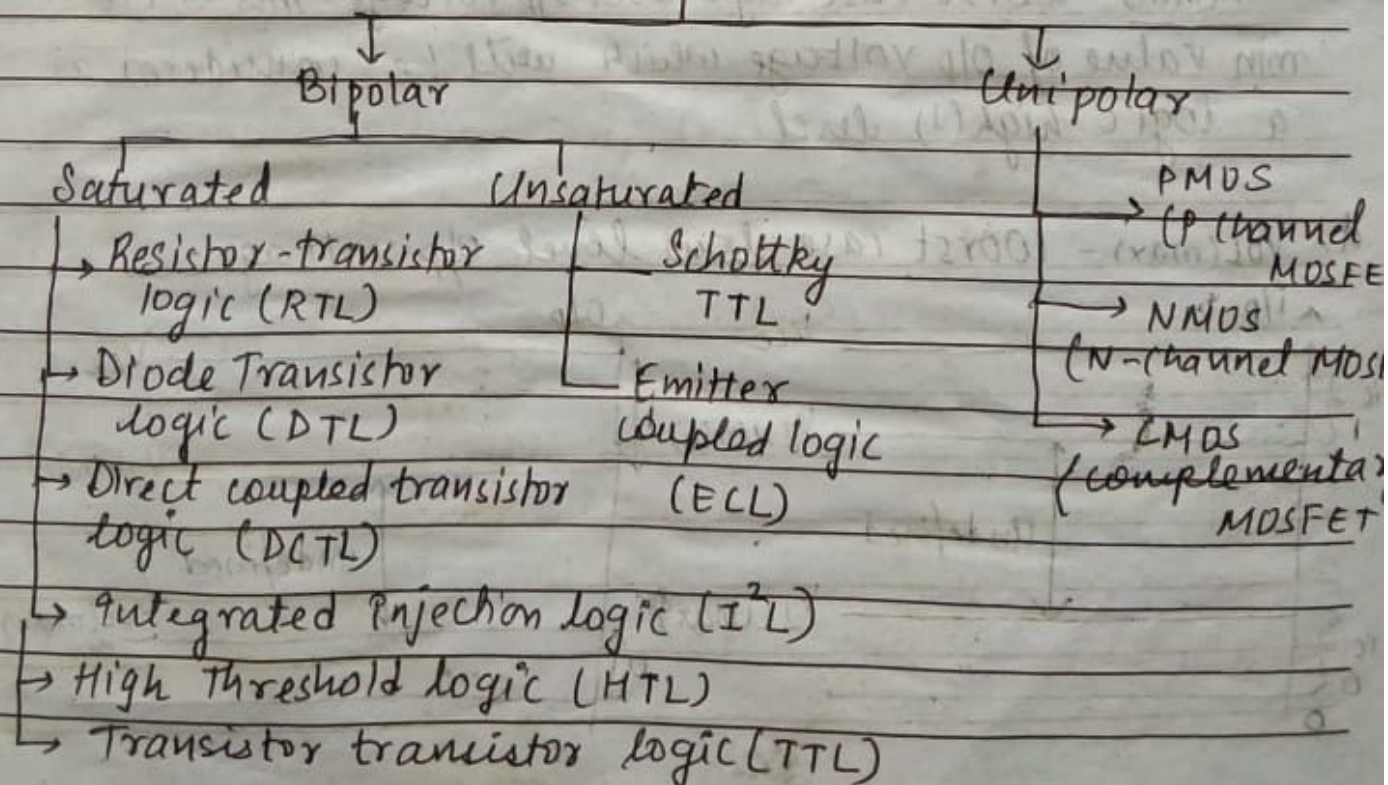 Bipolar
Unipolar
Saturated
Unsaturated
Resistor-transistor
logic (RTL)
Diode Transistor
logic (DTL)
Direct coupled transistor
logic (DCTL)
Integrated Injection logic (I²L)
High Threshold logic (HTL)
Transistor transistor logic (TTL)
Schottky
TTL
Emitter
coupled logic
(ECL)
PMOS
(P channel
MOSFE
NMOS
(N-channel MOS
CMOS
(complementa
MOSFET